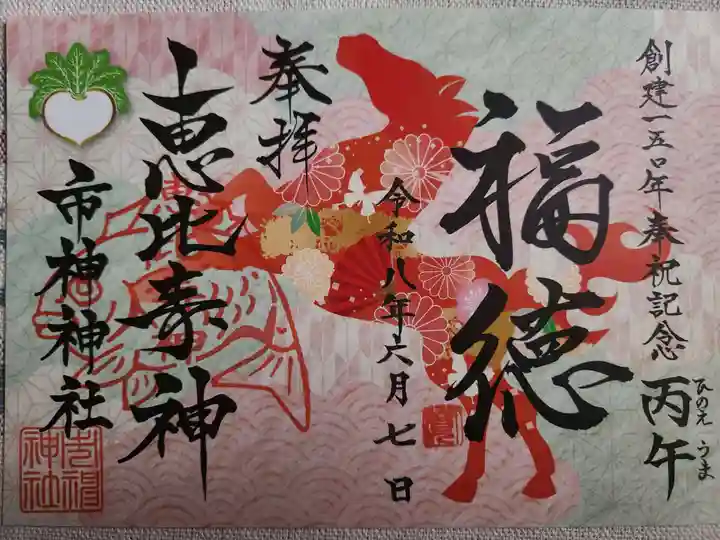 創建一五〇年奉祝記念
丙午
ひのえ うま
福徳
令和八年六月七日
奉拝
恵比寿神
市神神社